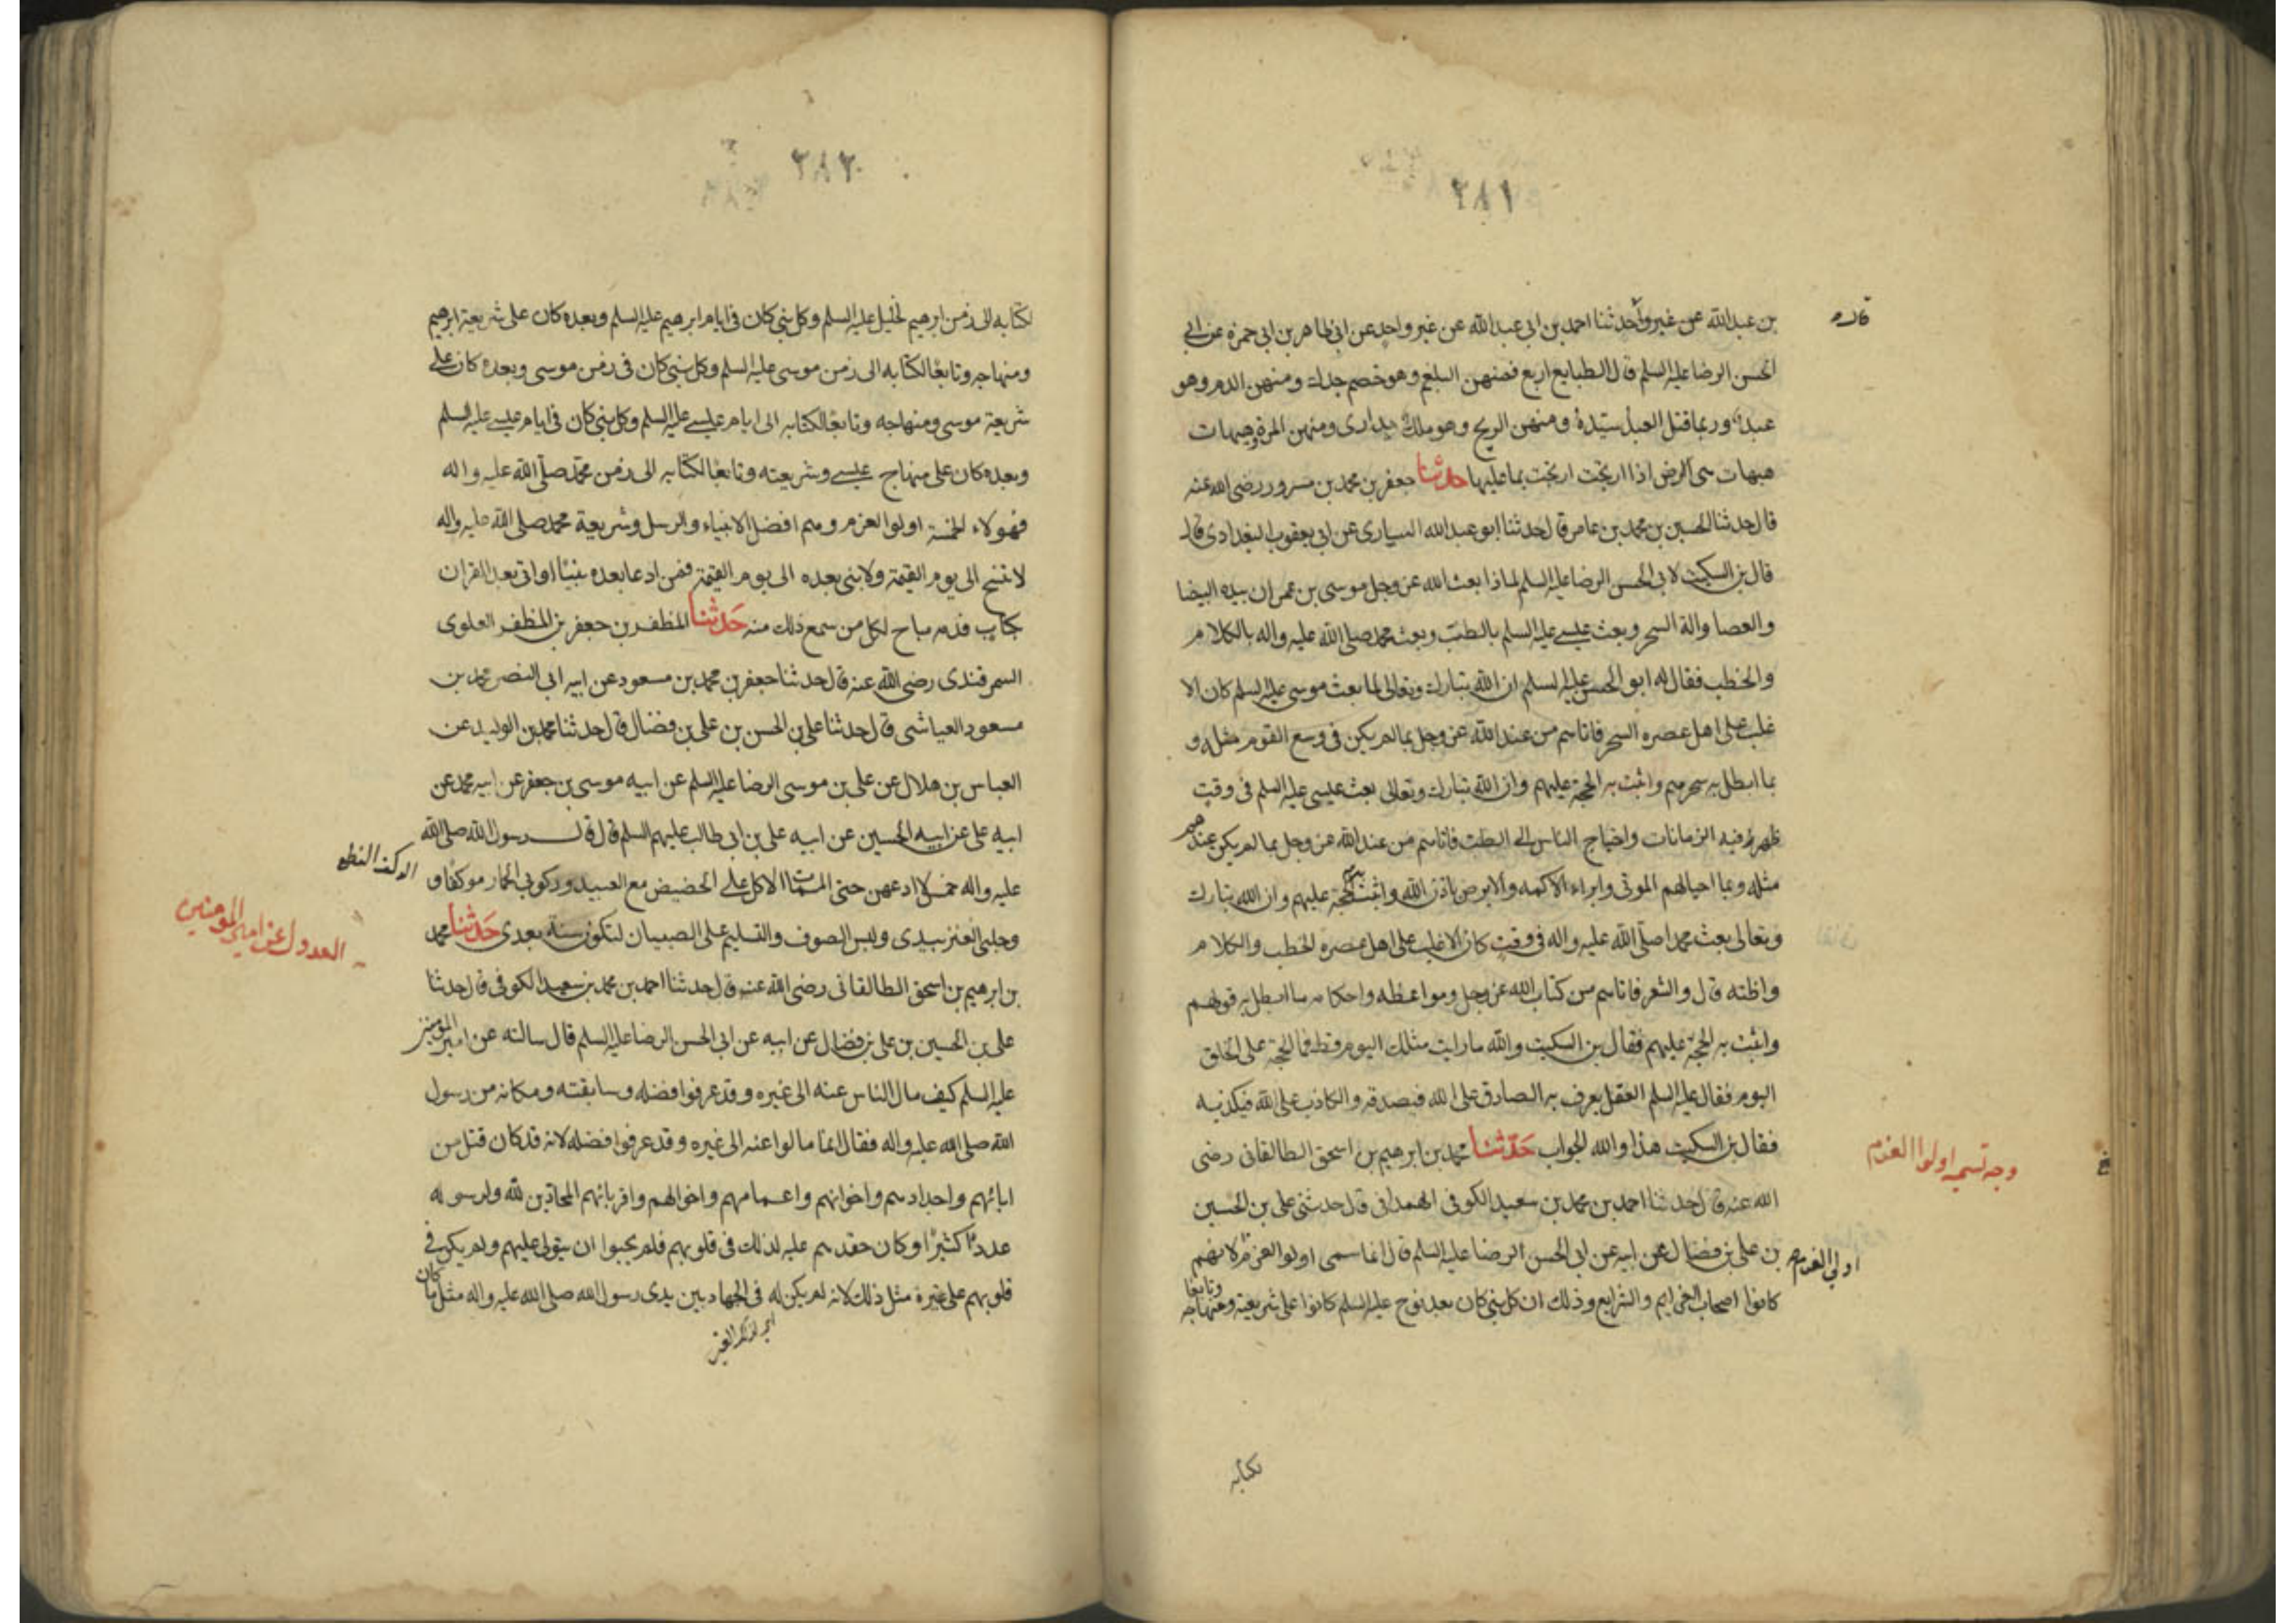 ٢٨١
بن عبد الله عن غير واحد ثنا احمد بن ابي عبد الله عن غير واحد عن ابي طاهر بن ابي حمزة عن ابي
الحسن الرضا عليه السلم قال الطبايع اربع فمنهن البلغم وهو خصم جدل ومنهن الدم وهو
عبد وربما قتل العبد سيده ومنهن الريح وهو ملك يدارى ومنهن المرة وهيهات
هيهات هى الارض اذا ارتجت ارتجت بما عليها حدثنا جعفر بن محمد بن مسرور رضى الله عنه
قال حدثنا الحسين بن محمد بن عامر قال حدثنا ابو عبد الله السيارى عن ابي يعقوب البغدادى قال
قال بن السكيت لابي الحسن الرضا عليه السلم لماذا بعث الله عز وجل موسى بن عمران بيده البيضا
والعصا والة السحر وبعث عيسى عليه السلم بالطب وبعث محمد صلى الله عليه واله بالكلام
والخطب فقال له ابو الحسن عليه السلم ان الله تبارك وتعالى لما بعث موسى عليه السلم كان الا
غلب على اهل عصره السحر فاتاهم من عند الله عز وجل بما لم يكن فى وسع القوم مثله و
بما ابطل به سحرهم واثبت به الحجة عليهم وان الله تبارك وتعالى بعث عيسى عليه السلم فى وقت
ظهرت فيه الزمانات واحتياج الناس الى الطب فاتاهم من عند الله عز وجل بما لم يكن عندهم
مثله وبما احيا لهم الموتى وابراء الاكمه والابرص باذن الله واثبت به الحجة عليهم وان الله تبارك
وتعالى بعث محمدا صلى الله عليه واله فى وقت كان الاغلب على اهل عصره الخطب والكلام
واظنه قال والشعر فاتاهم من كتاب الله عز وجل ومواعظه واحكامه ما ابطل به قولهم
واثبت به الحجة عليهم فقال بن السكيت والله ما رايت مثلك اليوم قط فما الحجة على الخلق
اليوم فقال عليه السلم العقل يعرف به الصادق على الله فيصدقه والكاذب على الله فيكذبه
فقال بن السكيت هذا والله الجواب حدثنا محمد بن ابرهيم بن اسحق الطالقانى رضى
وجه تسميه اولوا العزم
الله عنه قال حدثنا احمد بن محمد بن سعيد الكوفى الهمدانى قال حدثنى على بن الحسين
بن على بن فضال عن ابيه عن ابي الحسن الرضا عليه السلم قال انما سمى اولوا العزم لانهم
اولى العزم
كانوا اصحاب العزايم والشرايع وذلك ان كل نبى كان بعد نوح عليه السلم كانوا على شريعته ومنهاجه وتابعا
لكتابه
٢٨٢
لكتابه الى زمن ابرهيم الخليل عليه السلم وكل نبى كان فى ايام ابرهيم عليه السلم وبعده كان على شريعة ابرهيم
ومنهاجه وتابعا لكتابه الى زمن موسى عليه السلم وكل نبى كان فى زمن موسى وبعده كان على
شريعة موسى ومنهاجه وتابعا لكتابه الى ايام عيسى عليه السلم وكل نبى كان فى ايام عيسى عليه السلم
وبعده كان على منهاج عيسى وشريعته وتابعا لكتابه الى زمن محمد صلى الله عليه واله
فهولاء الخمسة اولوا العزم وهم افضل الانبياء والرسل وشريعة محمد صلى الله عليه واله
لا تنسخ الى يوم القيمة ولا نبى بعده الى يوم القيمة فمن ادعا بعده نبيا او اتى بعد القران
بكتاب فدمه مباح لكل من سمع ذلك منه حدثنا المظفر بن جعفر بن المظفر العلوى
السمرقندى رضى الله عنه قال حدثنا جعفر بن محمد بن مسعود عن ابيه ابي النصر محمد بن
مسعود العياشى قال حدثنا على بن الحسن بن على بن فضال قال حدثنا محمد بن الوليد عن
العباس بن هلال عن على بن موسى الرضا عليه السلم عن ابيه موسى بن جعفر عن ابيه محمد عن
ابيه على عن ابيه الحسين عن ابيه على بن ابي طالب عليهم السلم قال قال رسول الله صلى الله
عليه واله خمس لا ادعهن حتى الممات الاكل على الحضيض مع العبيد وركوبى الحمار موكفا و
وحلبى العنز بيدى ولبس الصوف والتسليم على الصبيان لتكون سنة بعدى حدثنا محمد
العدول عن امير المومنين
بن ابرهيم بن اسحق الطالقانى رضى الله عنه قال حدثنا احمد بن محمد بن سعيد الكوفى قال حدثنا
على بن الحسين بن على بن فضال عن ابيه عن ابي الحسن الرضا عليه السلم قال سالته عن امير المومنين
عليه السلم كيف مال الناس عنه الى غيره وقد عرفوا فضله وسابقته ومكانه من رسول
الله صلى الله عليه واله فقال انما مالوا عنه الى غيره وقد عرفوا فضله لانه قد كان قتل من
ابائهم واجدادهم واخوانهم واعمامهم واخوالهم واقربائهم المحادين لله ولرسوله
عددا كثيرا وكان حقدهم عليه لذلك فى قلوبهم فلم يحبوا ان يتولى عليهم ولم يكن فى
قلوبهم على غيره مثل ذلك لانه لم يكن له فى الجهاد بين يدى رسول الله صلى الله عليه واله مثل ما كان